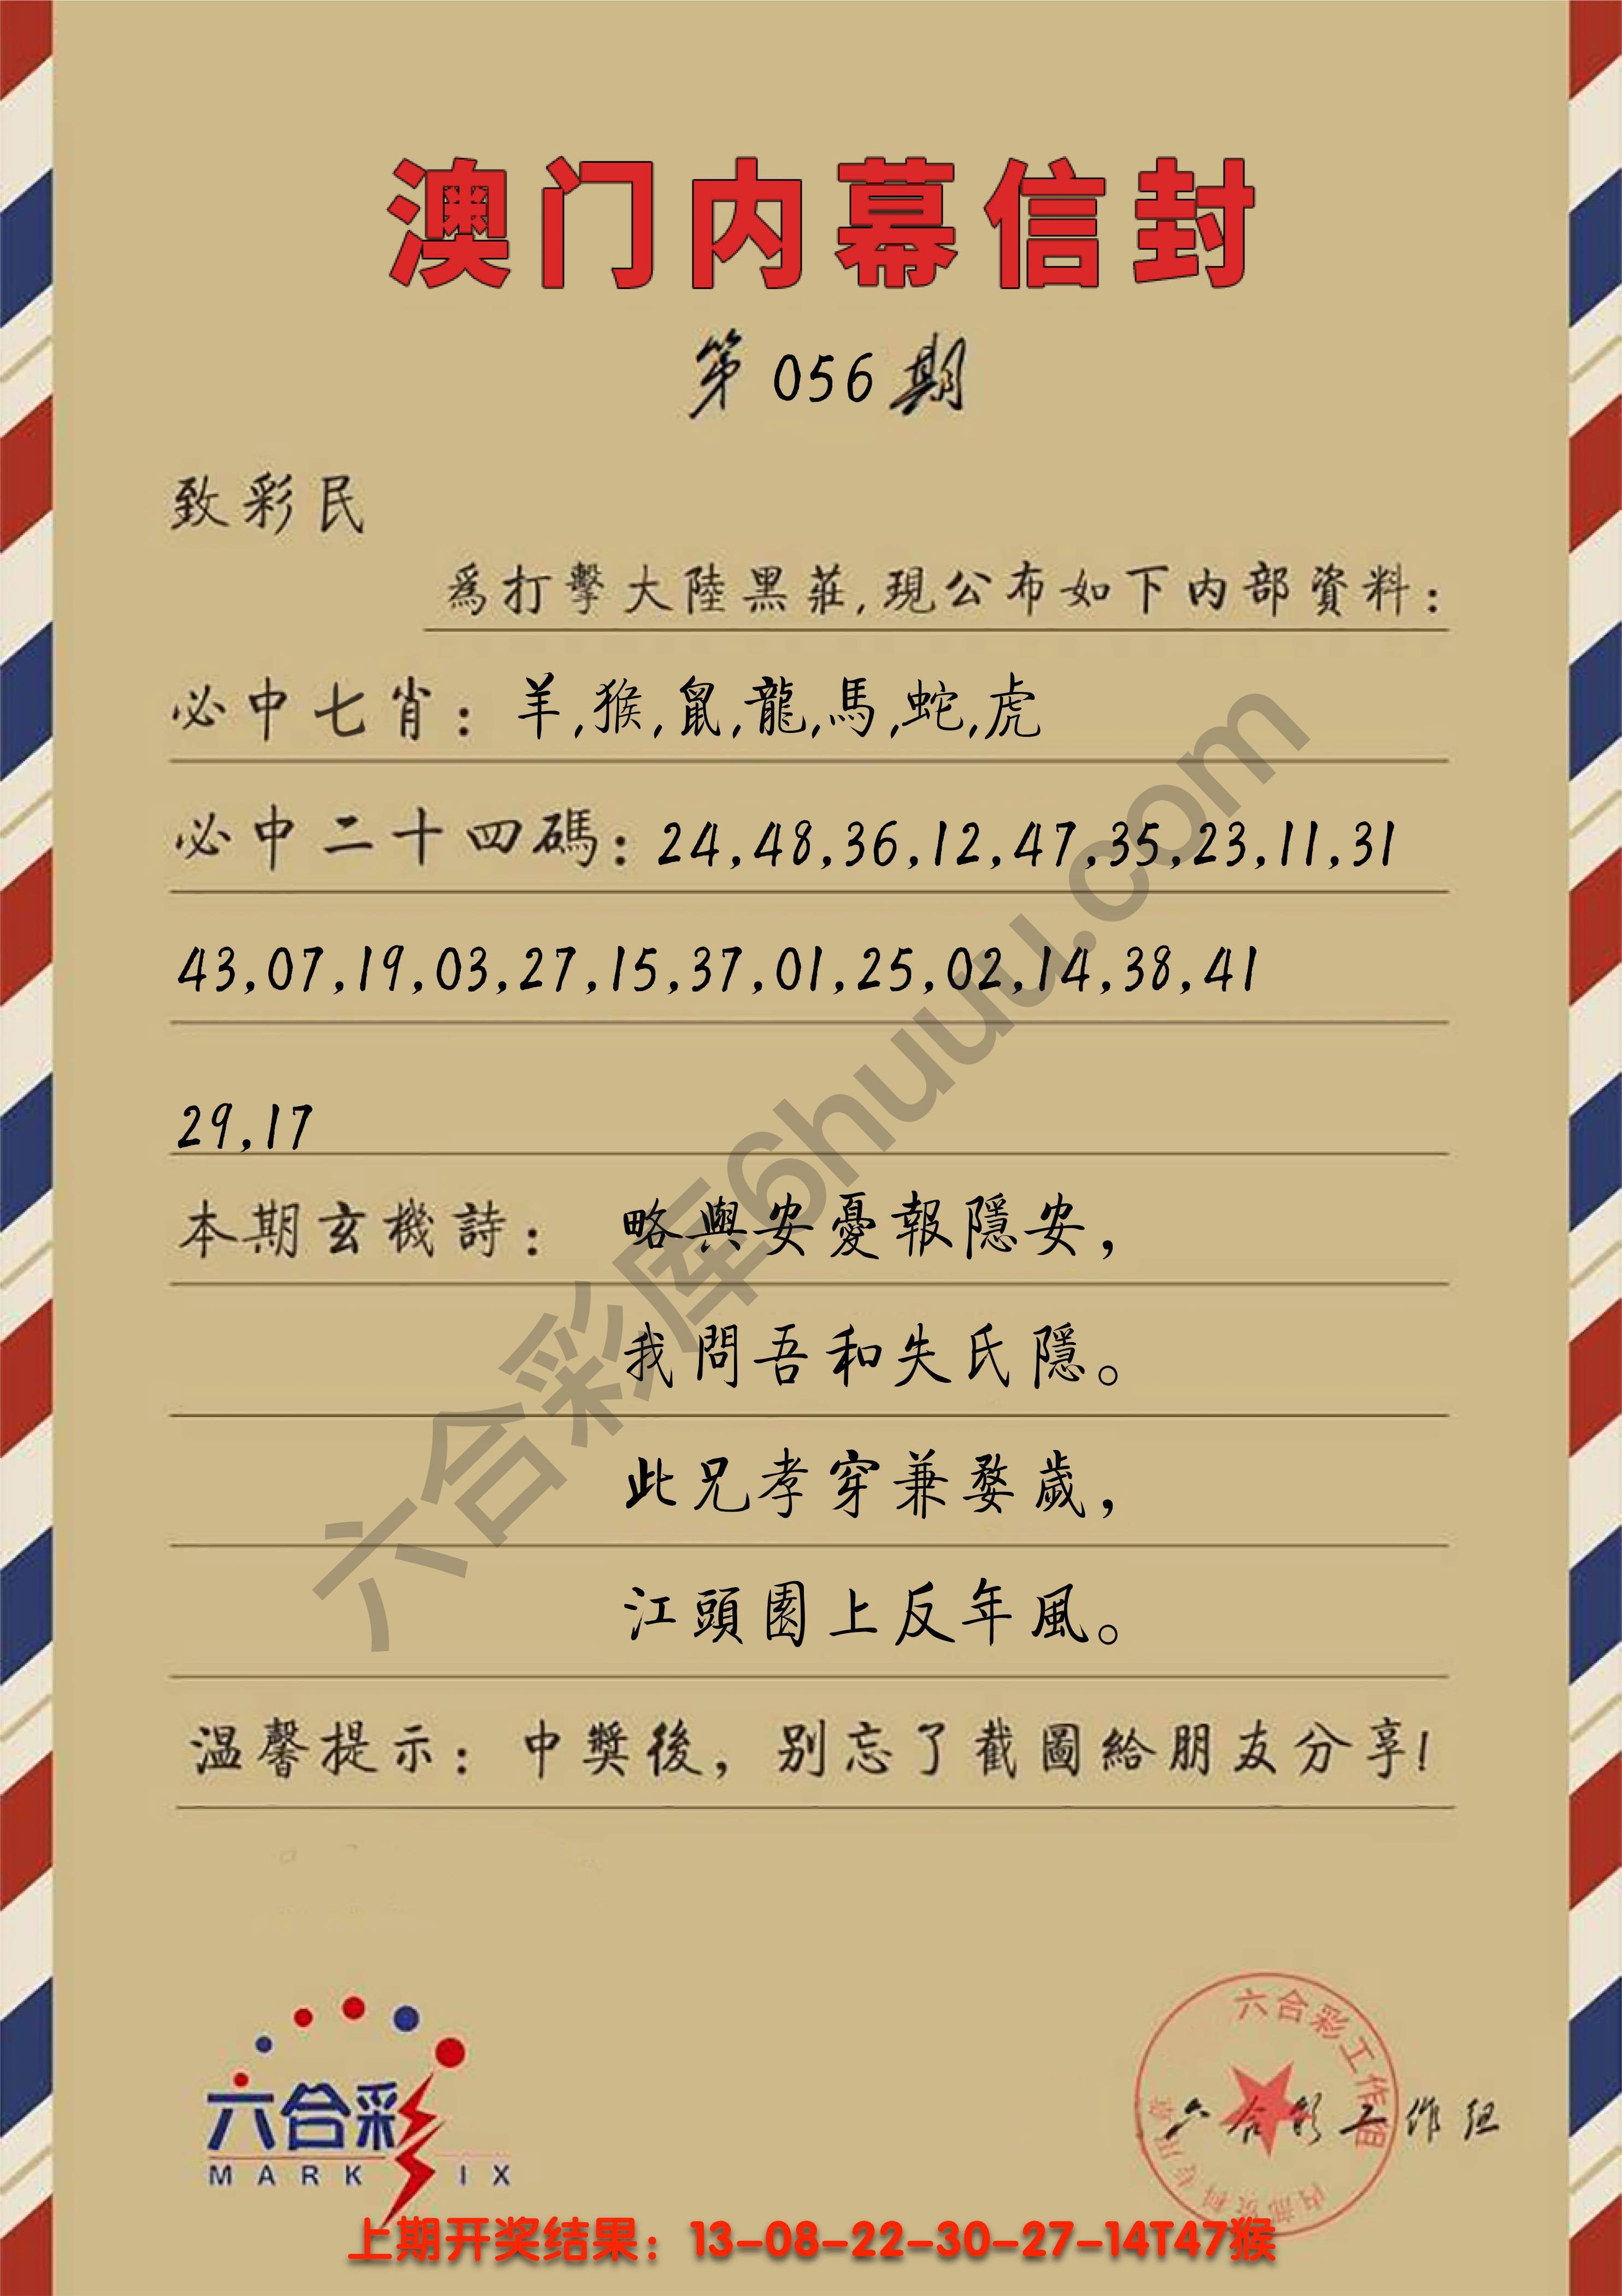 澳门内幕信封
第 056 期
致彩民
為打擊大陸黑莊,現公布如下内部資料:
必中七肖: 羊,猴,鼠,龍,馬,蛇,虎
必中二十四碼: 24,48,36,12,47,35,23,11,31
43,07,19,03,27,15,37,01,25,02,14,38,41
29,17
本期玄機詩: 略與安憂報隱安,
我問吾和失氏隱。
此兄孝穿兼婺歲,
江頭園上反年風。
温馨提示: 中獎後, 别忘了截圖給朋友分享!
六合彩库6huuu.com
六合彩
MARK SIX
六合彩工作组
六合彩工作组
上期开奖结果: 13-08-22-30-27-14T47猴